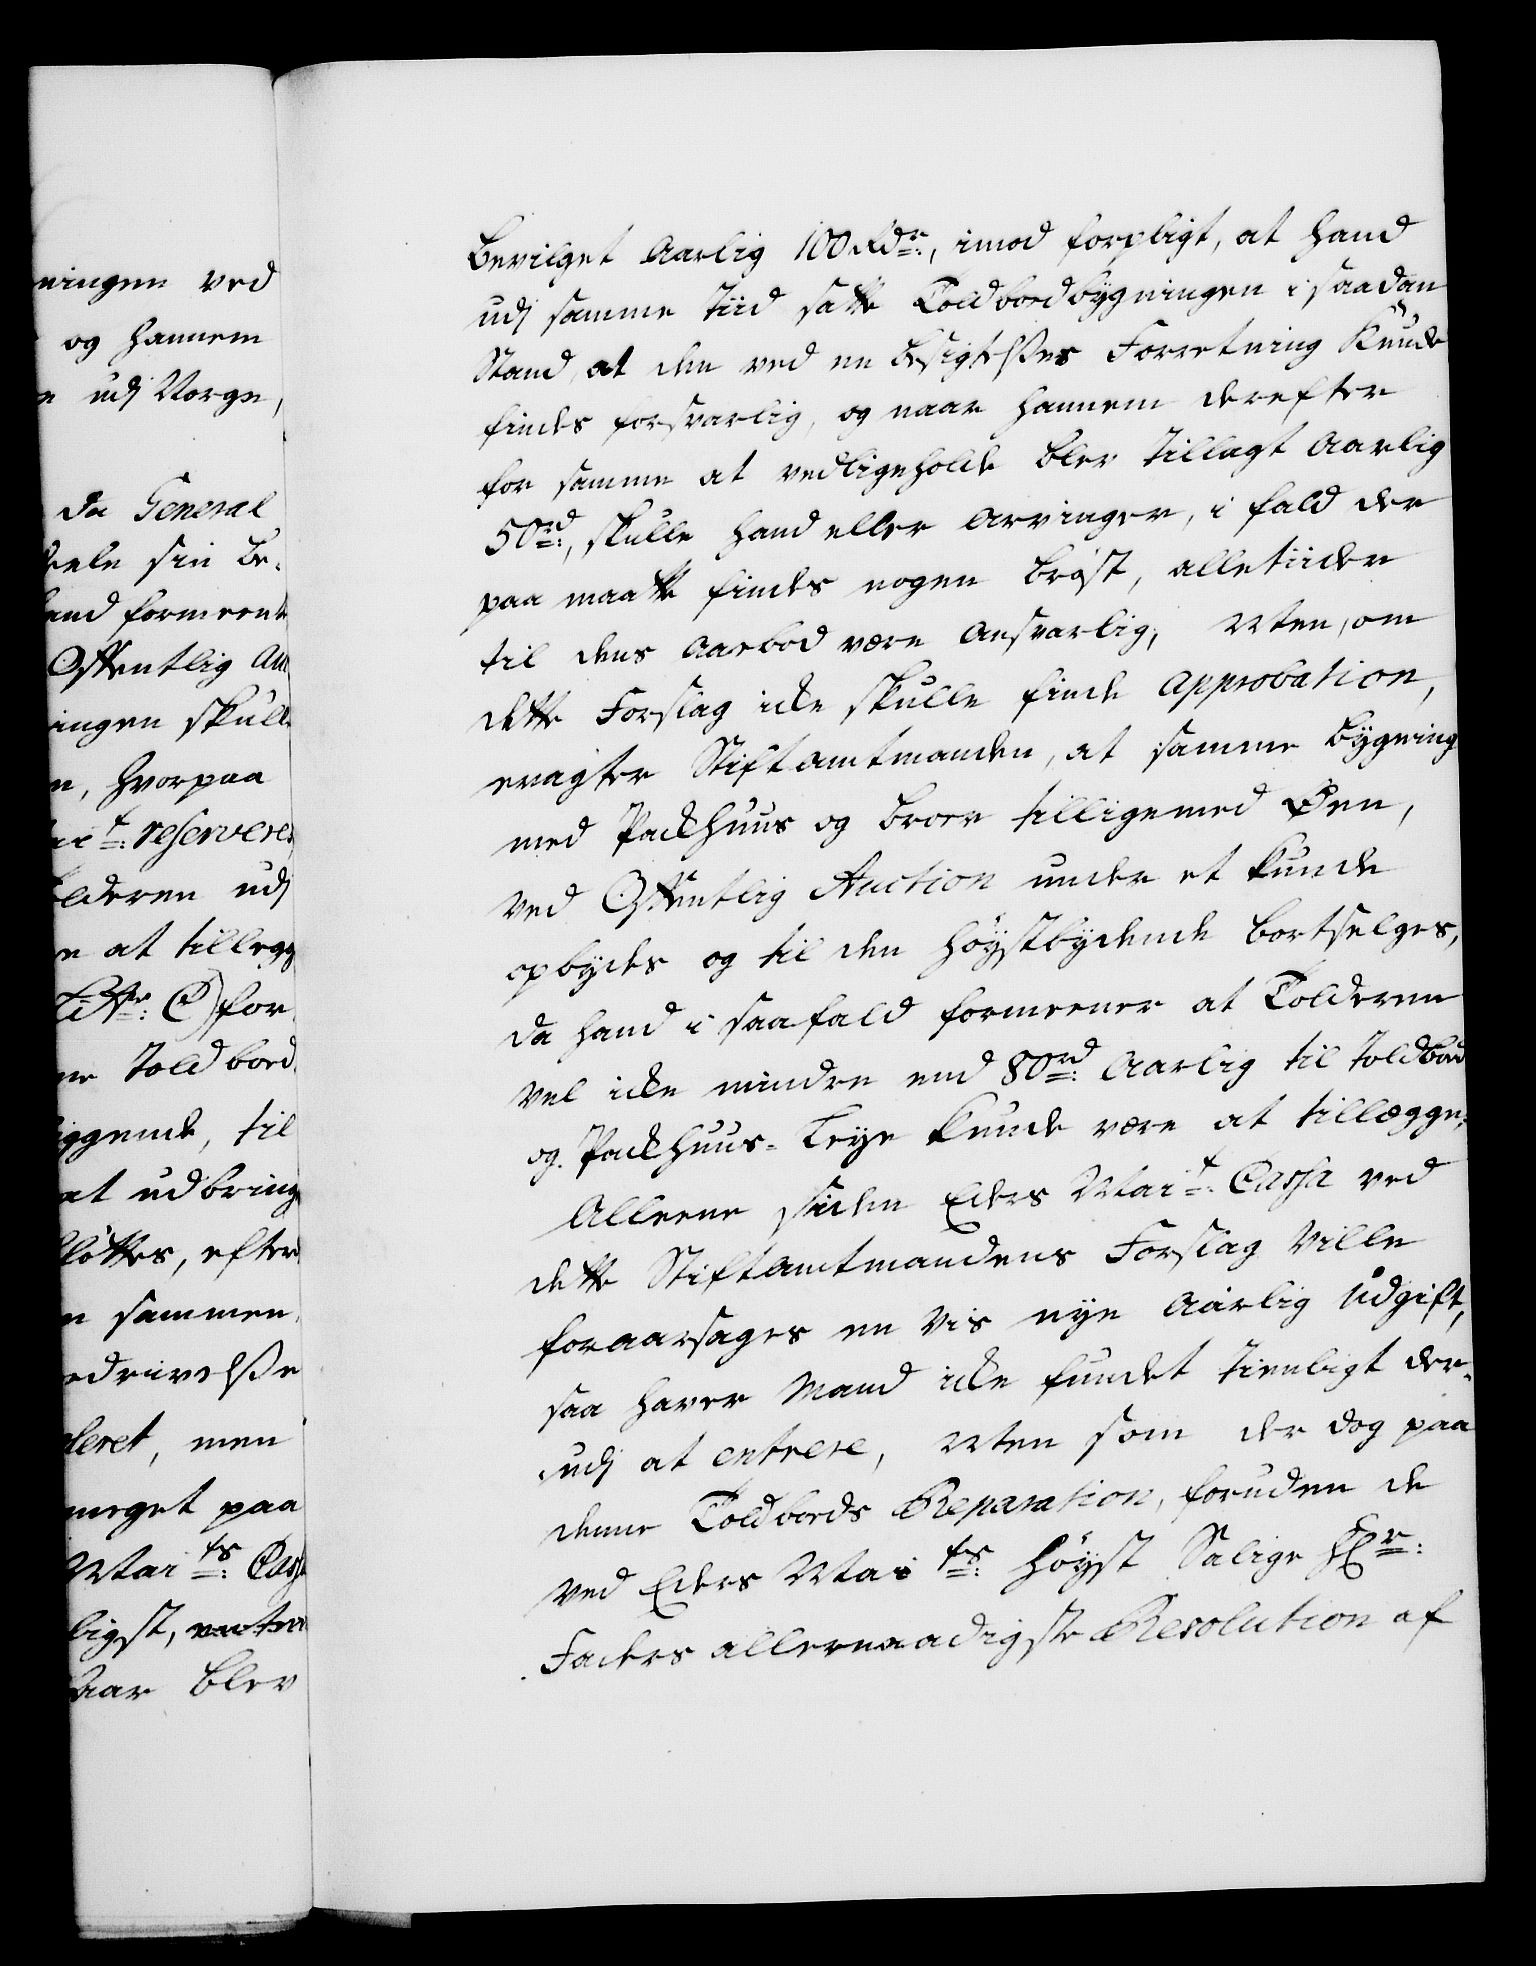 ningen ved
og hannem
udj Norge,
da General
deele sin be-
hand formeente
Offentlig Au
ingen skulle
n, hvorpaa
Mait: reserveres
olderen udj
e at tillegg
Littr: C) for
ne Toldbod
liggende, til
at udbring
fløttes, efter
n sammen
edrivelsse
deret, men
meget paa
Maits: Cass
ligst,
Aar blev
bevilget Aarlig 100 Rdr:, imod forpligt, at hand
udj samme Tiid sætte Toldbodbygningen i saadan
Stand, at den ved en besigtelsses Forretning Kunde
findes forsvarlig, og naar hannem derefter
for samme at vedligeholde blev tillagt Aarlig
50rd:, skulle hand eller Arvinger, i fald der
paa maatte findes nogen brøst, alletiider
til dens Aarbod være Ansvarlig; Men, om
dette Forslag icke skulle finde Approbation,
eragter Stiftamtmanden, at samme bygning
med Packhuus og broer tilligemed Øen,
ved Offentlig Auction under et kunde
opbydes og til den høystbydende bortselges,
da hand i saafald formeener at Tolderen
vel icke mindre end 80rd: Aarlig til Toldbod
og Packhuus-Leye kunde være at tillægge;
Alleene siden Eders Mait: Cassa ved
dette Stiftamtmandens Forslag ville
foraarsages en vis nye Aarlig Udgift,
saa haver Mand icke fundet tienligt der-
udj at entrere, Men som der dog paa
denne Toldbods Reparation, foruden de
ved Eders Maits: Høyst Salige Hr:
Faders allernaadigste Resolution af